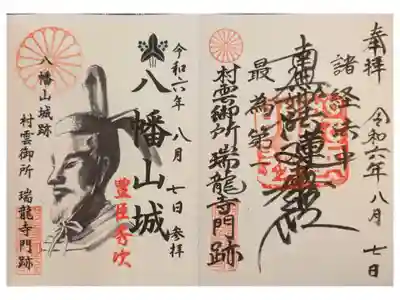 奉拝 令和六年八月七日
諸経法中
南無妙法蓮華経
最為第一
村雲御所瑞龍寺門跡
令和六年 八月 七日参拝
八幡山城
豊臣秀次
八幡山城跡
村雲御所 瑞龍寺門跡